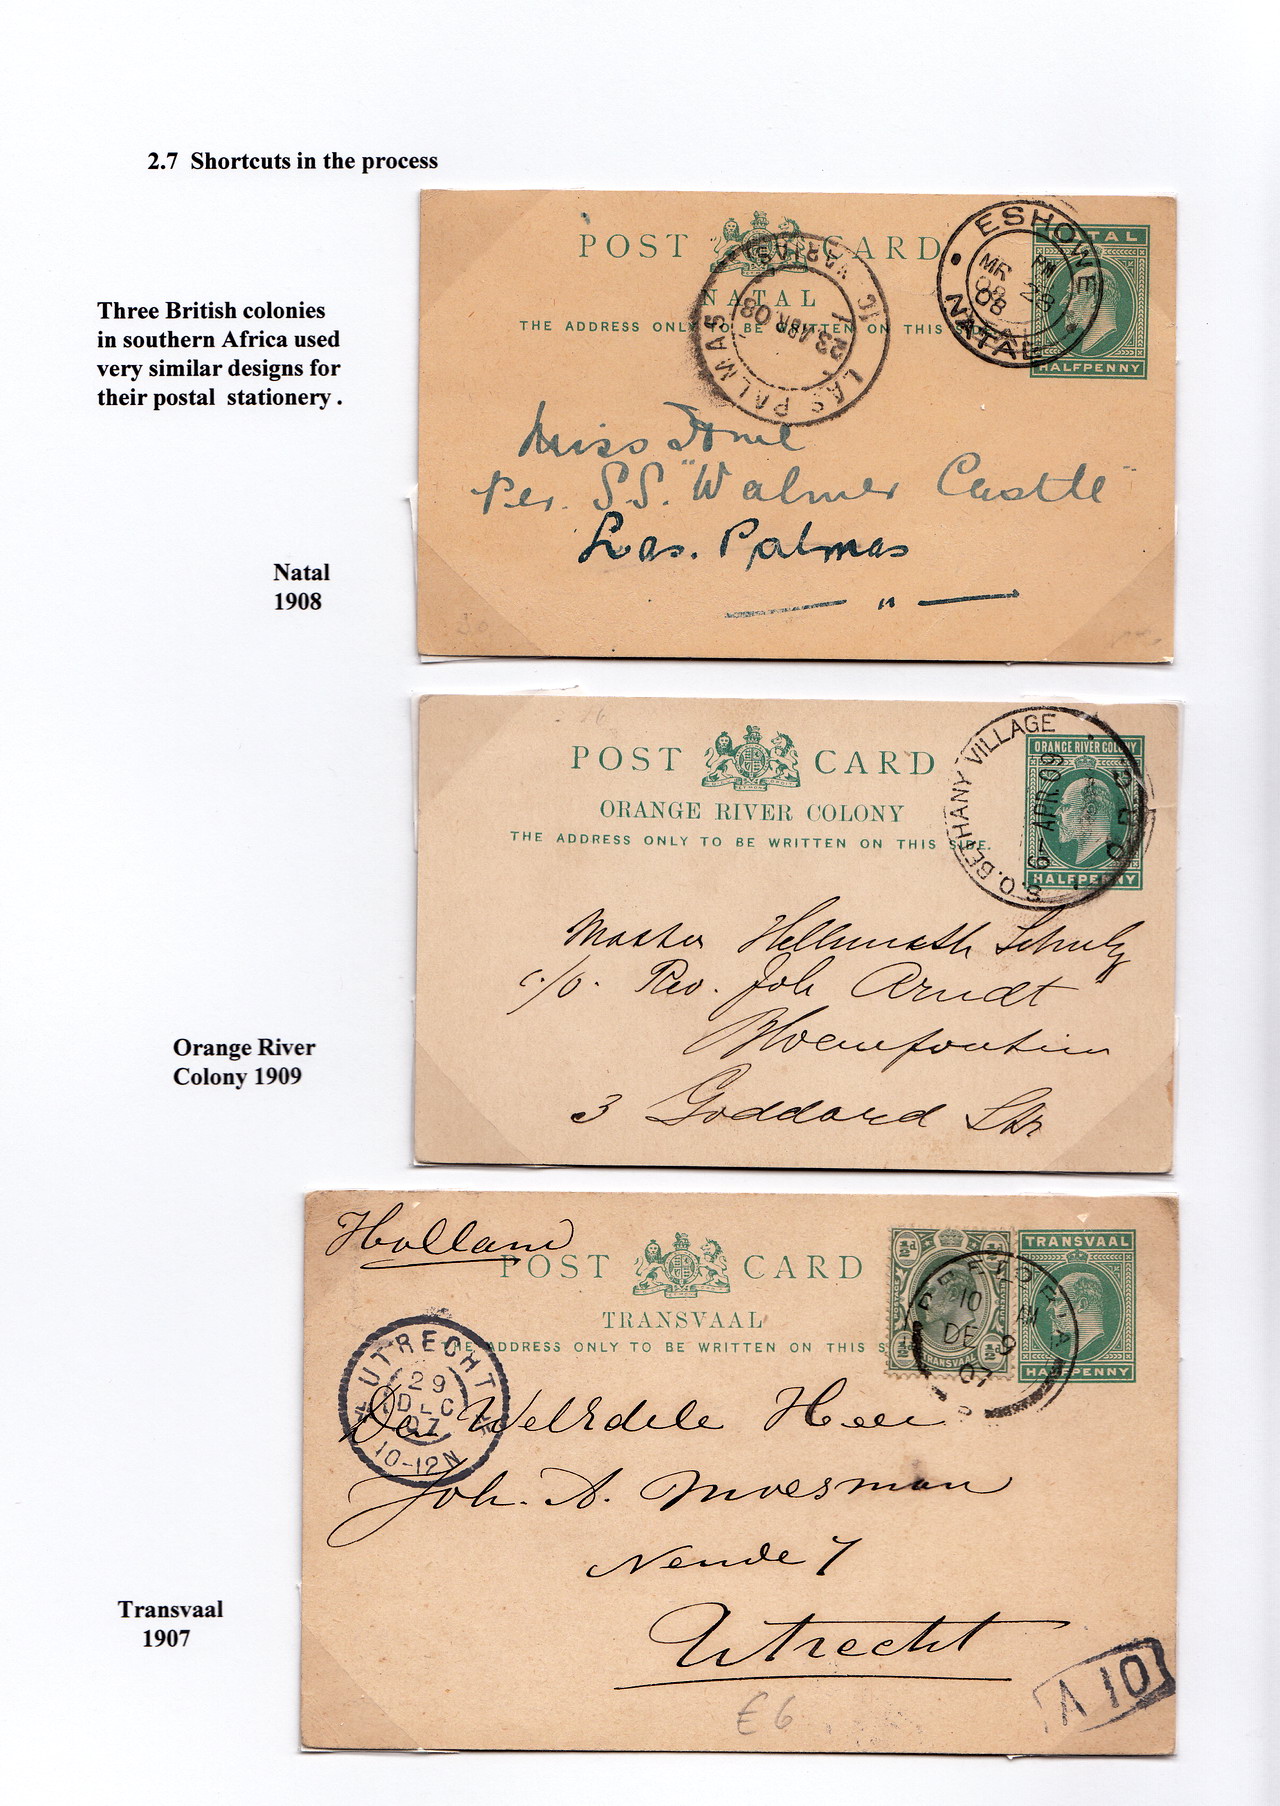 2.7 Shortcuts in the process
Three British colonies
in southern Africa used
very similar designs for
their postal stationery .
Natal
1908
POST CARD
NATAL
THE ADDRESS ONLY TO BE WRITTEN ON THIS
NATAL
HALFPENNY
ESHOWE
PM
MR 28
08
NATAL
LAS PALMAS
23 APR 08
LAS PALMAS
Miss
Per. S.S. "Walmer Castle"
Las. Palmas
— " —
Orange River
Colony 1909
POST CARD
ORANGE RIVER COLONY
THE ADDRESS ONLY TO BE WRITTEN ON THIS SIDE.
ORANGE RIVER COLONY
HALFPENNY
S.O. BETHANY VILLAGE
9-APR.09
Master Hellmuth Schulz
c/o. Rev. Joh Arndt
Bloemfontein
3 Goddard Str
Transvaal
1907
Holland
POST CARD
TRANSVAAL
THE ADDRESS ONLY TO BE WRITTEN ON THIS S
½d ½d
½d ½d
TRANSVAAL
TRANSVAAL
HALFPENNY
PRETORIA
10 AM
DE 9
07
UTRECHT
29
DEC
07
10-12N
Den Weledele Heer
Joh. A. Moesman
Neude 7
Utrecht
£6
V 10